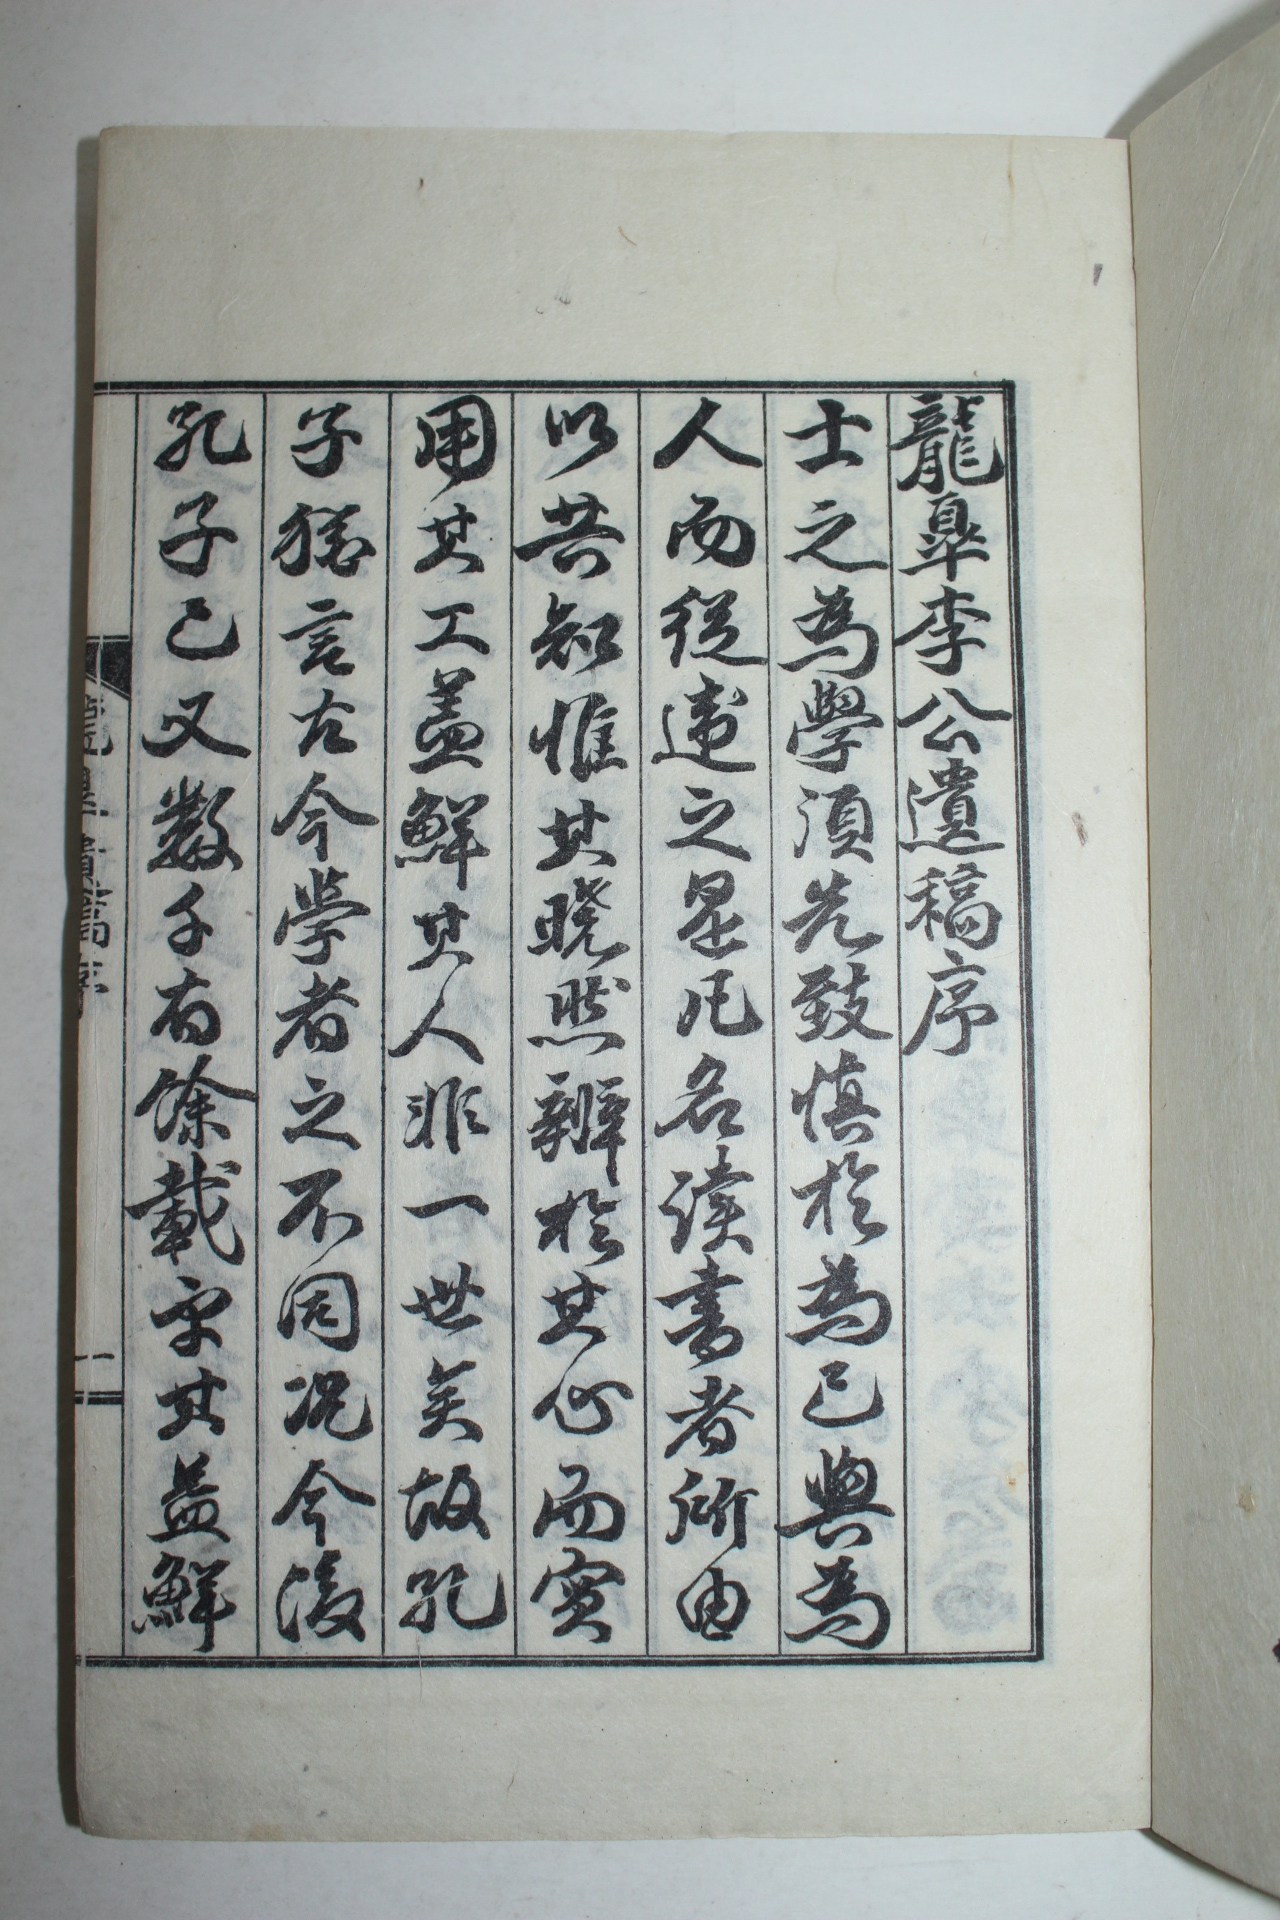 龍皐李公遺稿序
士之為學須先致慎於為己與為
人而從違之是凡名讀書者所由
以共知惟其曉然辨於其心而實
用其工盖鮮其人非一世矣故孔
子猶言古今學者之不同況今後
孔子已又數千有餘載乎其益鮮
龍皐遺稿序
一